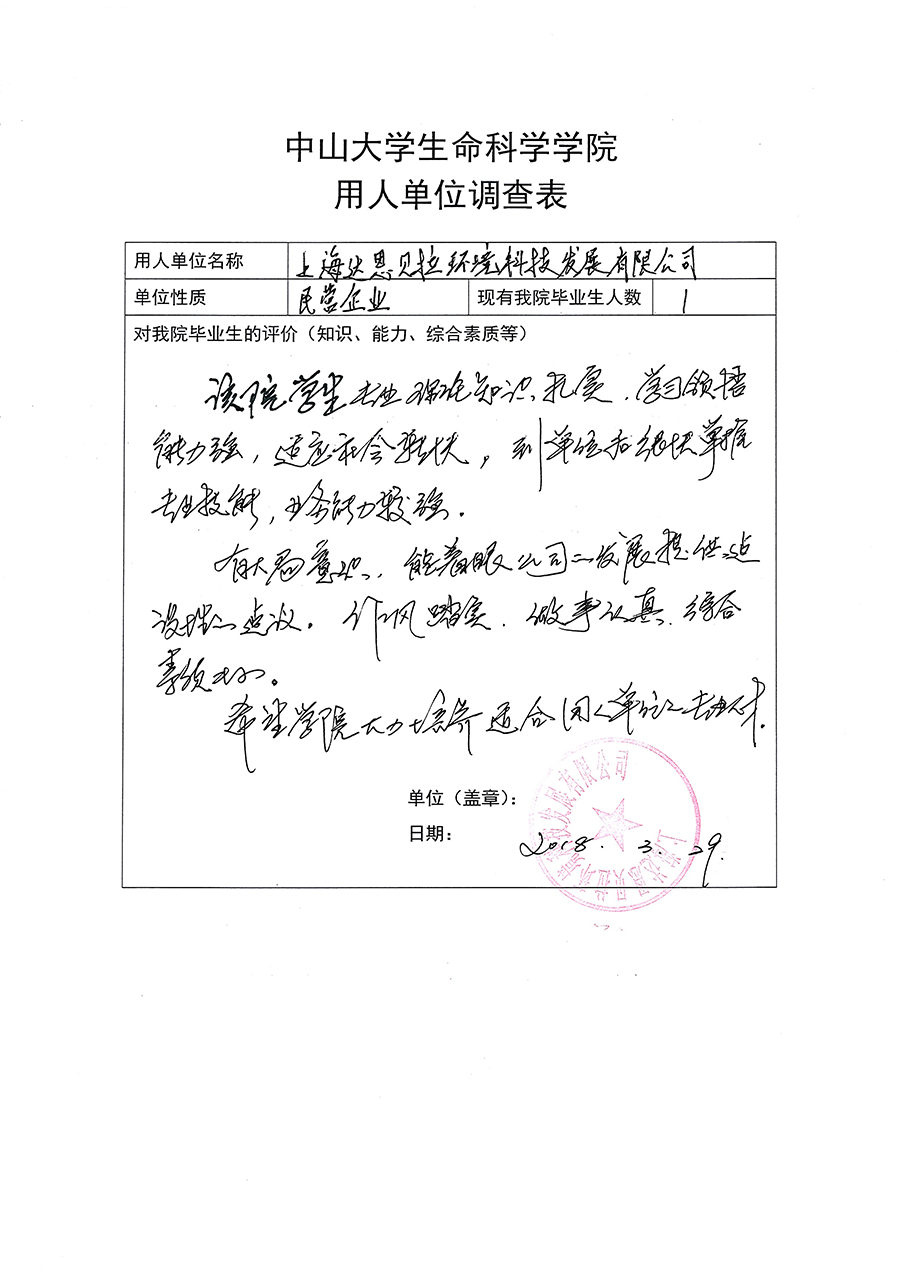 中山大学生命科学学院
用人单位调查表
用人单位名称 上海达恩贝拉环境科技发展有限公司
单位性质 民营企业 现有我院毕业生人数 1
对我院毕业生的评价（知识、能力、综合素质等）
该院学生专业理论知识扎实，学习领悟
能力强，适应社会较快，到单位后很快掌握
专业技能，业务能力较强。
有大局意识，能着眼公司发展提供
建议。作风踏实，做事认真，综合
素质
希望学院大力培养适合用人单位之专业人才.
单位（盖章）：
日期： 2018. 3. 29.
上海达恩贝拉环境科技发展有限公司